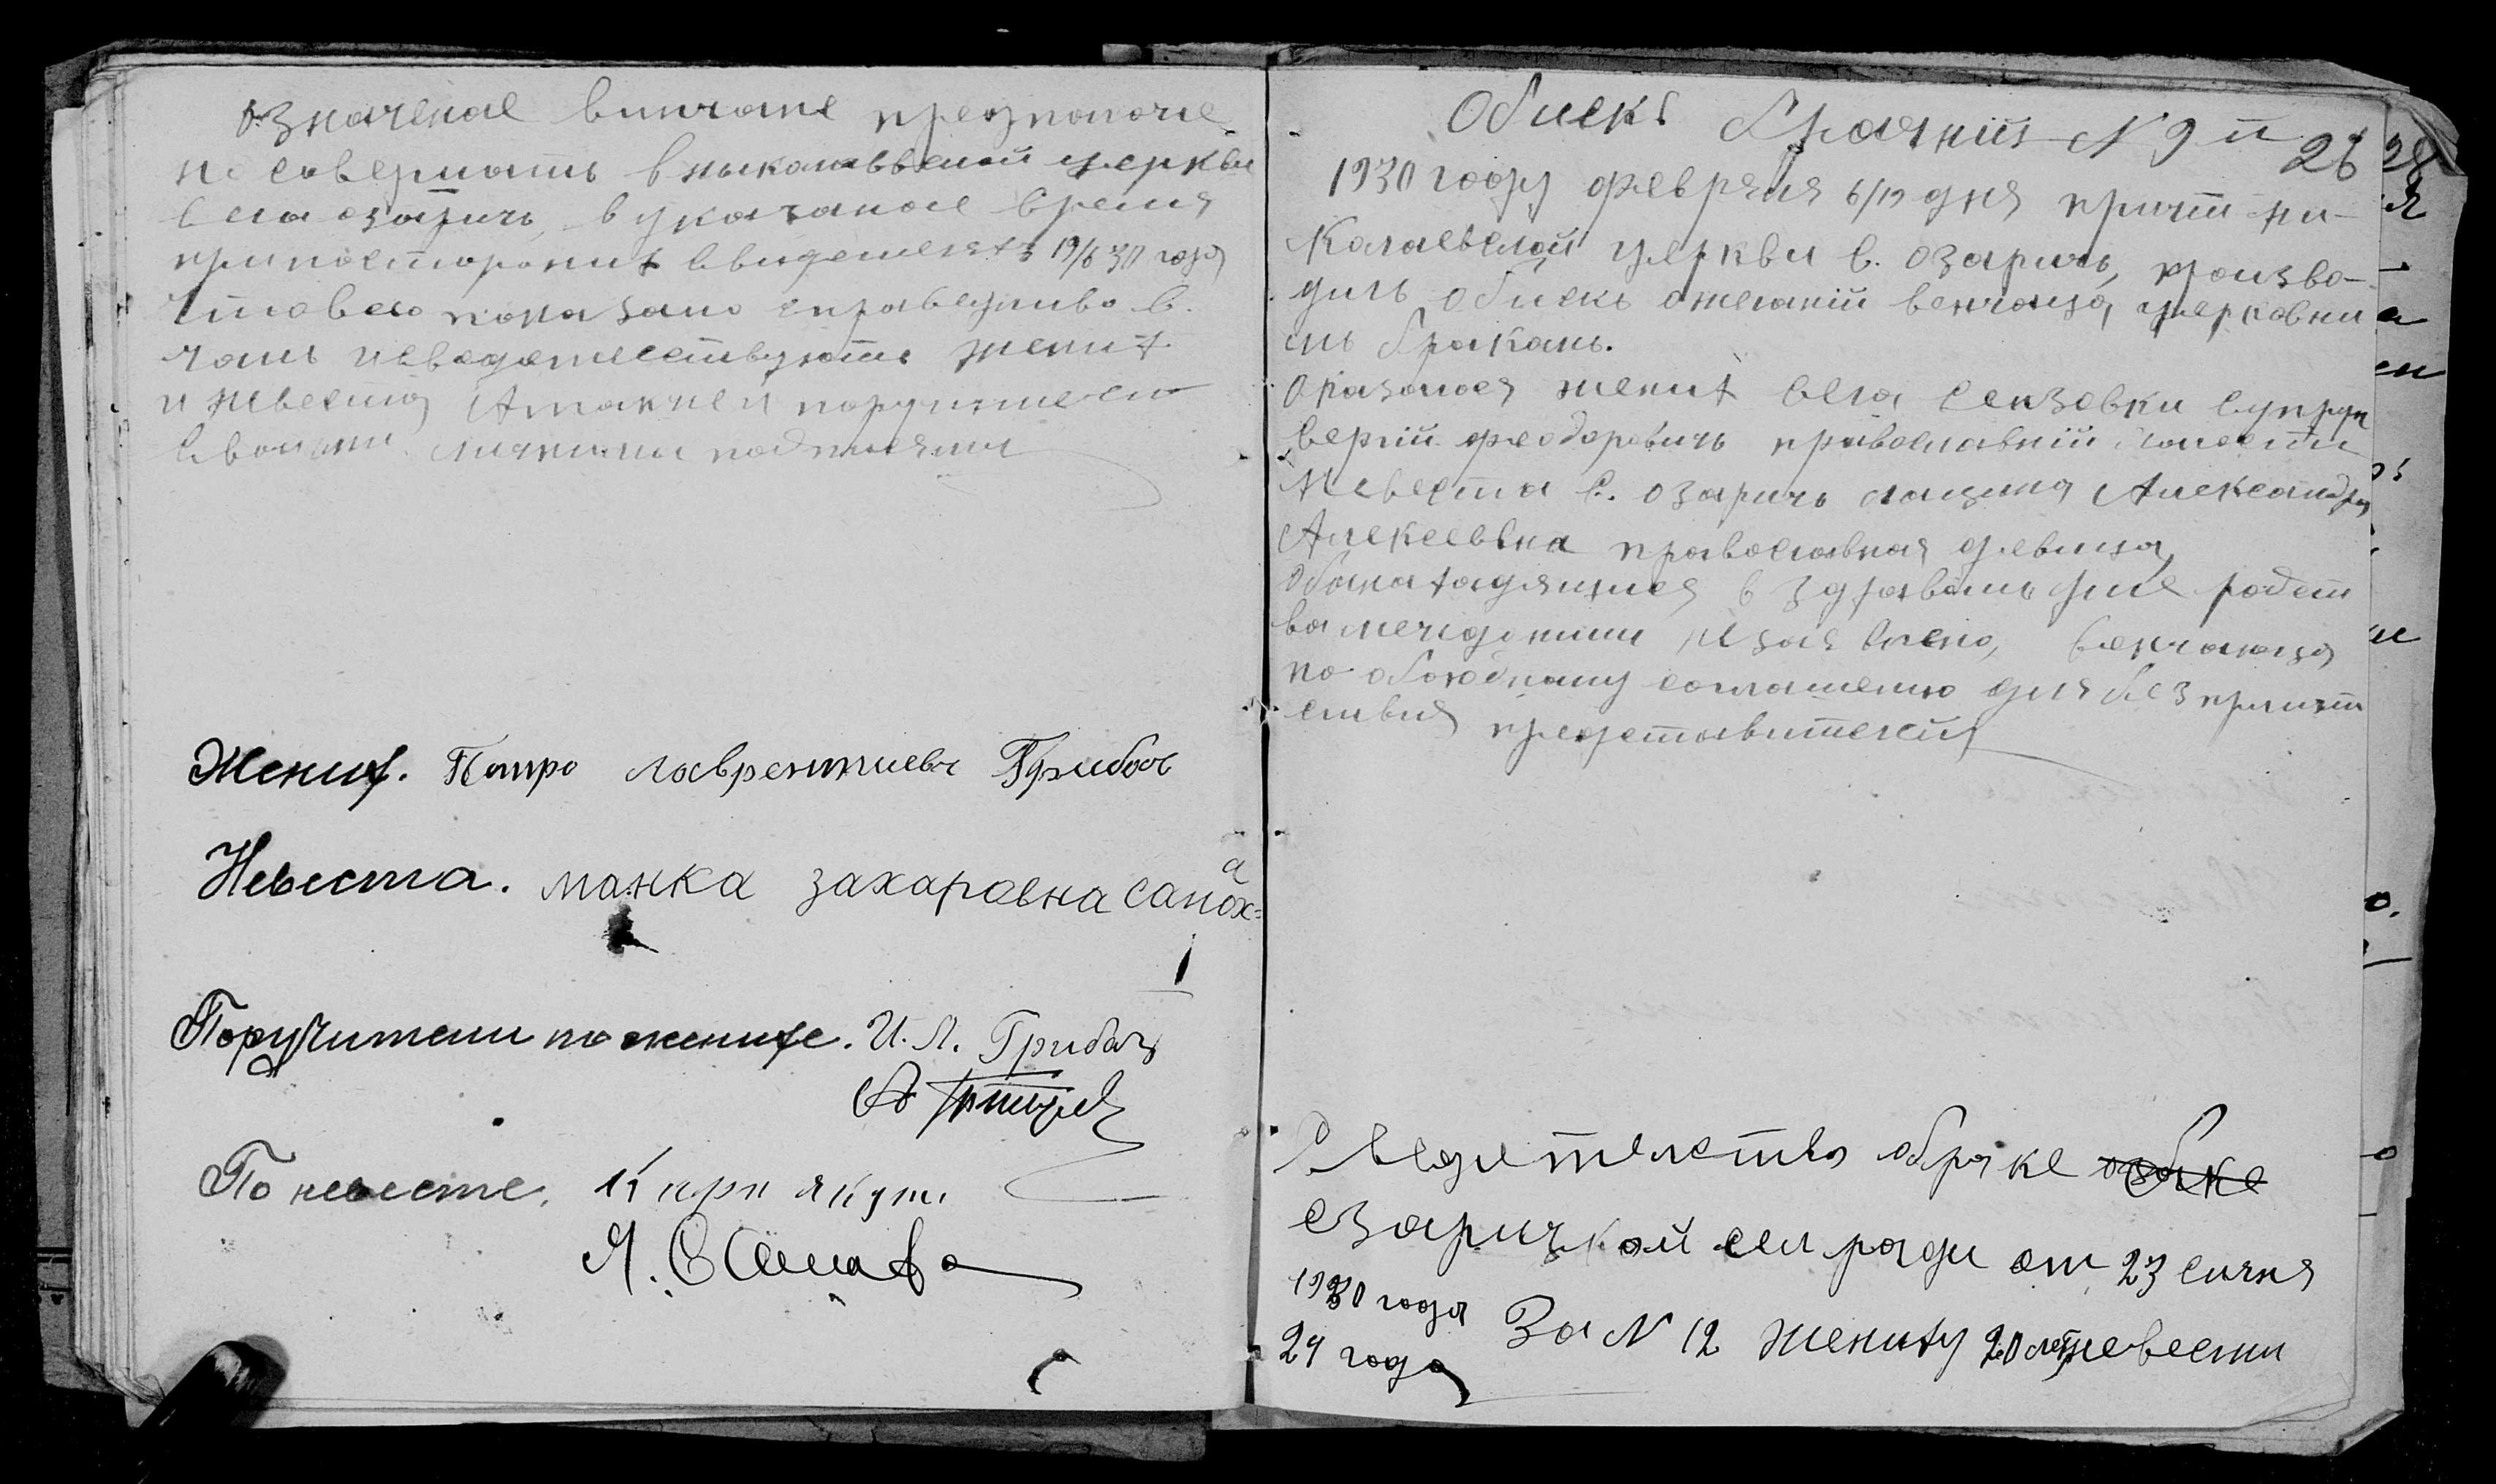 Означеное винчане предположе
но совершать в николаввской церкви
села озаричь, в указаное время
припостороних свидетелях 19/6 30 года
что всео показано справедливо в.
чать и сведетельствують жених
и невеста Атакже и поручители
своими личними подписями
Жених. Петро лаврентиевич Грибов
Невеста. манка захаровна сапох=
а
Поручители по женихе. И. Л. Грибач
По невесте. Карп якут.
Обиск брачний N 9 й
26
1930 году февраля 6/19 дня причт ни-
колаевской церкви с. озаричь, произво-
диль обиск ожеланий венчаца, церковни
мь бракамь.
Оказалося жених села сензовки супрун
сергій феодоровичь православній холости
Невеста с. озаричь лацина Александра
Алексеевна православная девица,
Обанаходящися в здравомь уме родст
ва межидоними незаявлено, венчаюца
по обоюдному согла­шению для без припят
ствия представители
Сведетелство обраке
озаричкой сел ради от 23 сичня
1930 года За N 12 жениху 20 лет невести
24 года